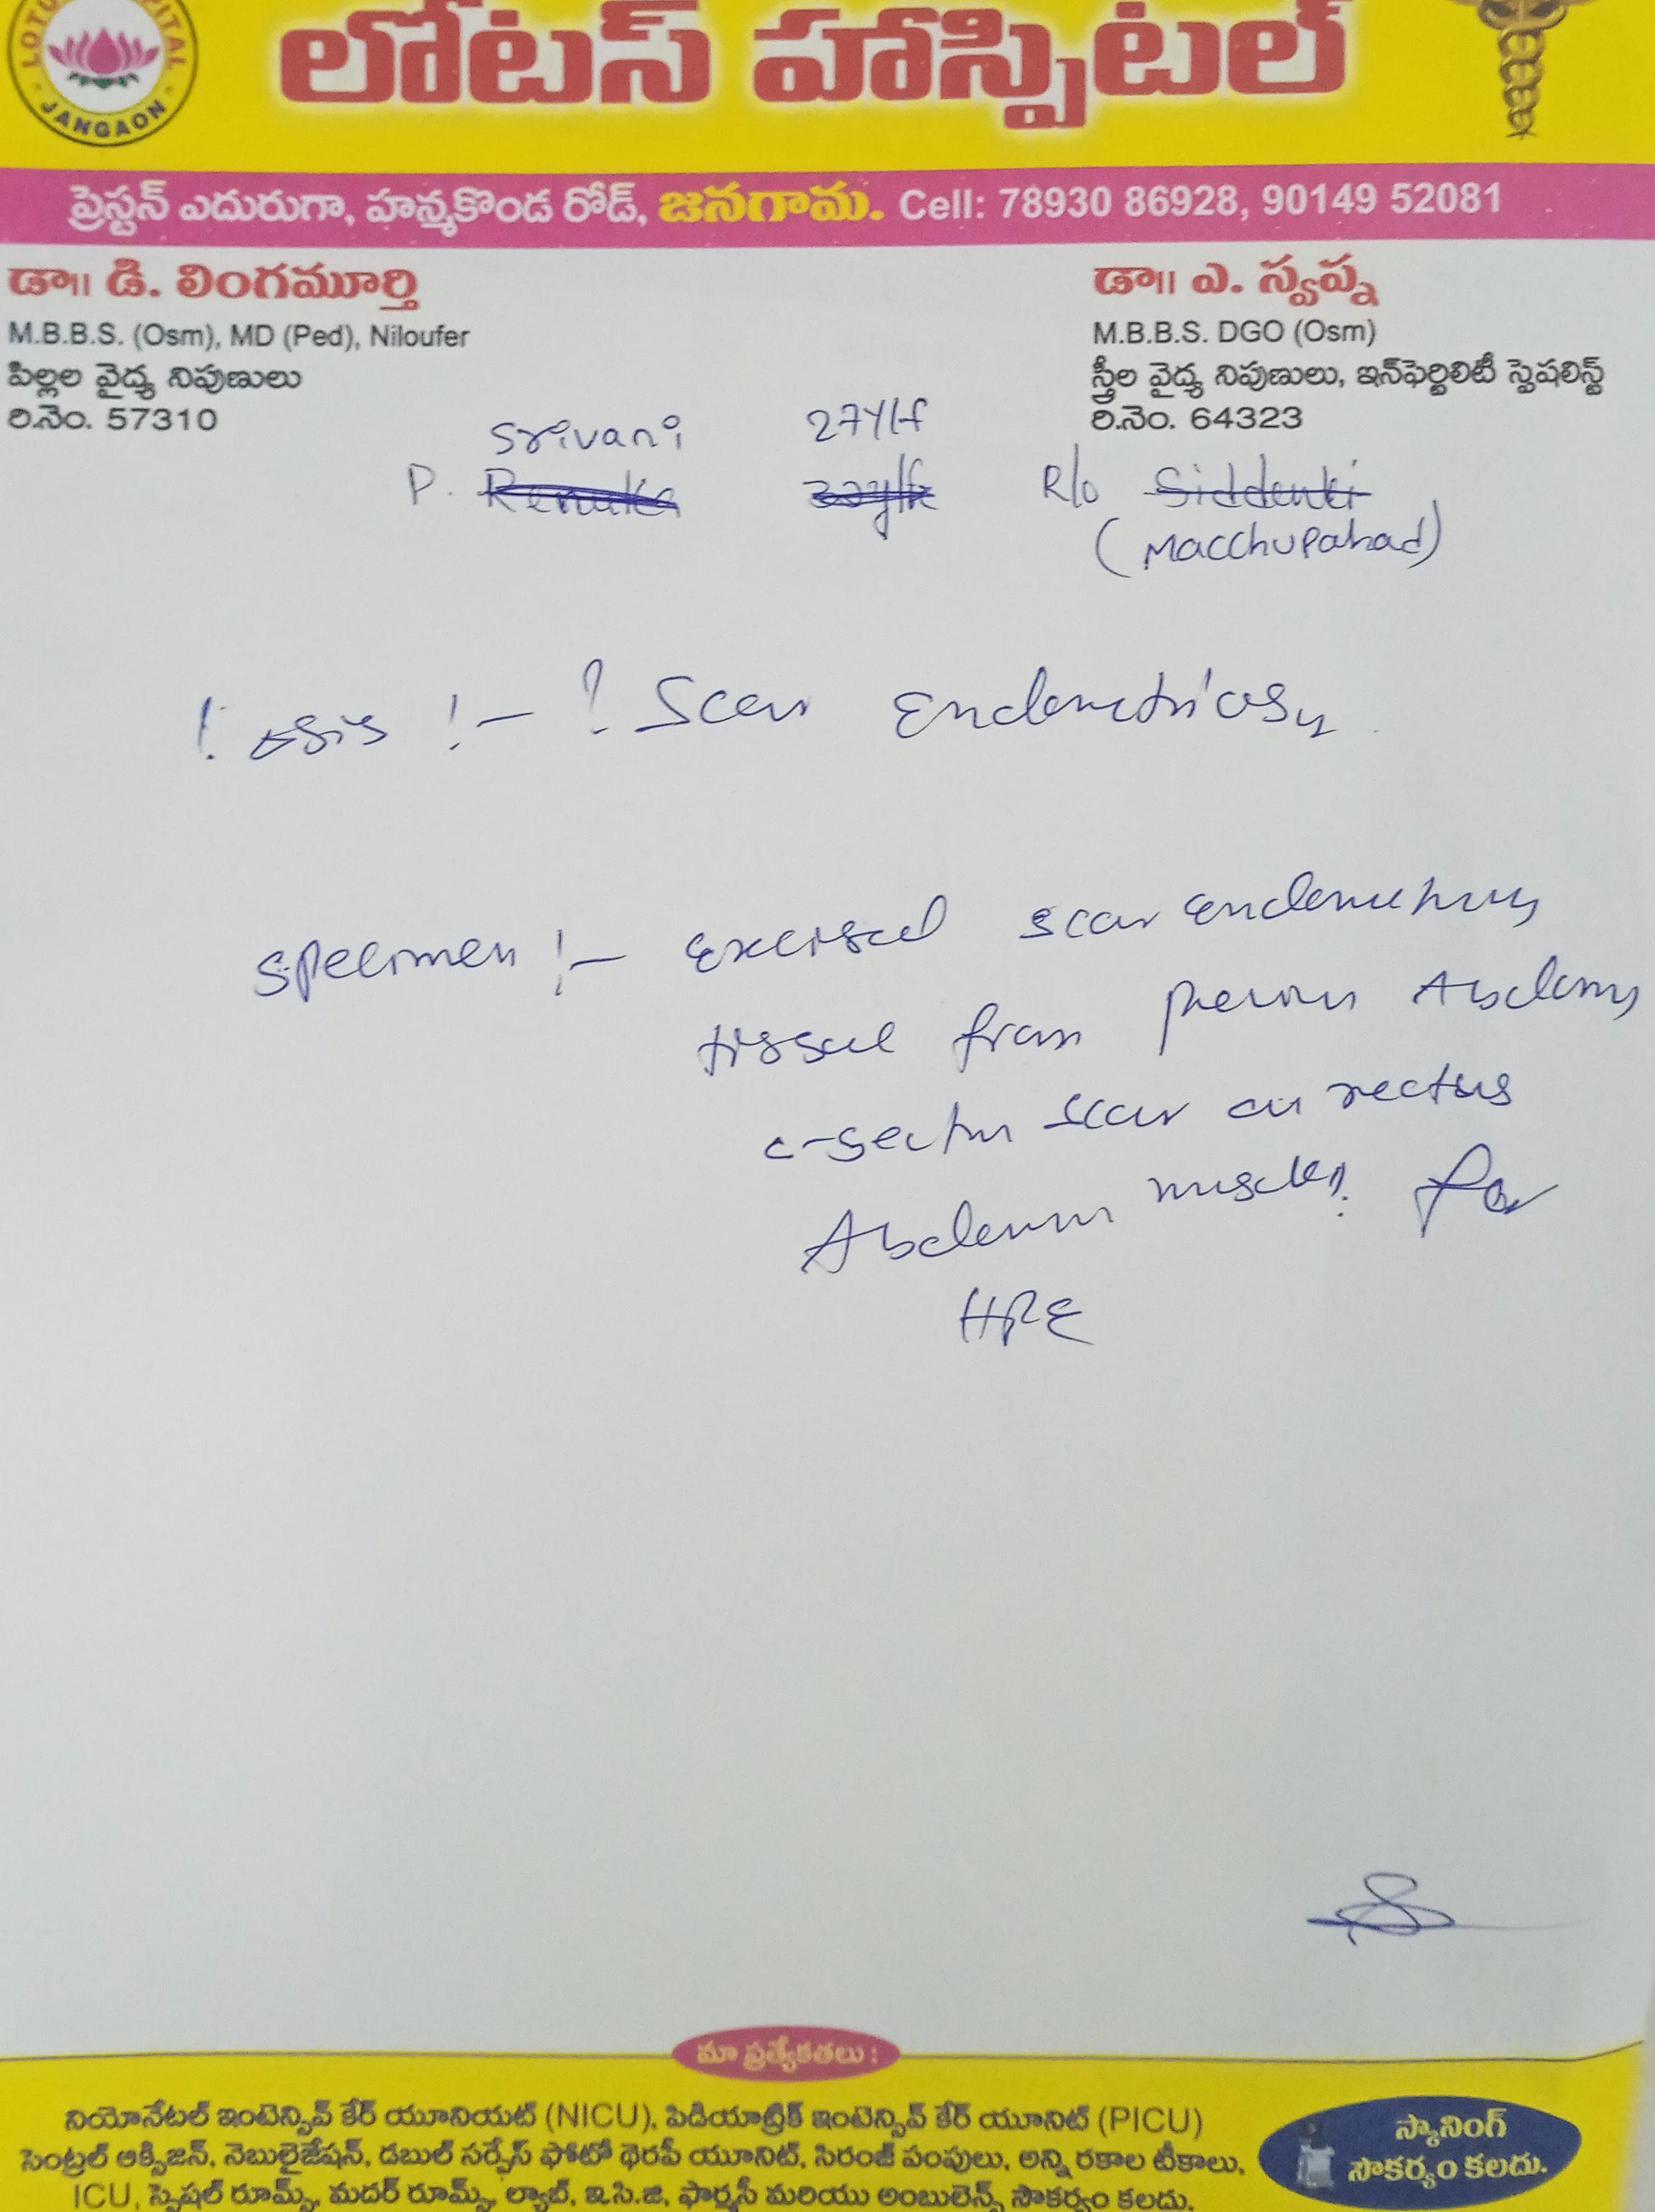 LOTUS HOSPITAL
JANGAON
లోటస్ హాస్పిటల్
ప్రెస్టన్ ఎదురుగా, హన్మకొండ రోడ్, జనగామ. Cell: 78930 86928, 90149 52081
డా॥ డి. లింగమూర్తి
M.B.B.S. (Osm), MD (Ped), Niloufer
పిల్లల వైద్య నిపుణులు
రి.నెం. 57310
డా॥ ఎ. స్వప్న
M.B.B.S. DGO (Osm)
స్త్రీల వైద్య నిపుణులు, ఇన్‌ఫెర్టిలిటీ స్పెషలిస్ట్
రి.నెం. 64323
Srivani 27Y/F
P. Renuka R/o Siddenki
(Macchupahad)
:- ? Scar Endometriosis
Specimen :- Excised scar endometriosis
tissue from previous Abdominal
c-section scar on rectus
Abdominal muscles. for
HPE
మా ప్రత్యేకతలు :
నియోనేటల్ ఇంటెన్సివ్ కేర్ యూనియట్ (NICU), పిడియాట్రిక్ ఇంటెన్సివ్ కేర్ యూనిట్ (PICU)
సెంట్రల్ ఆక్సిజన్, నెబులైజేషన్, డబుల్ సర్ఫేస్ ఫోటో థెరపీ యూనిట్, సిరంజ్ పంపులు, అన్ని రకాల టీకాలు,
ICU, స్పెషల్ రూమ్స్, మదర్ రూమ్స్, ల్యాబ్, ఇ.సి.జి, ఫార్మసీ మరియు అంబులెన్స్ సౌకర్యం కలదు.
స్కానింగ్
సౌకర్యం కలదు.